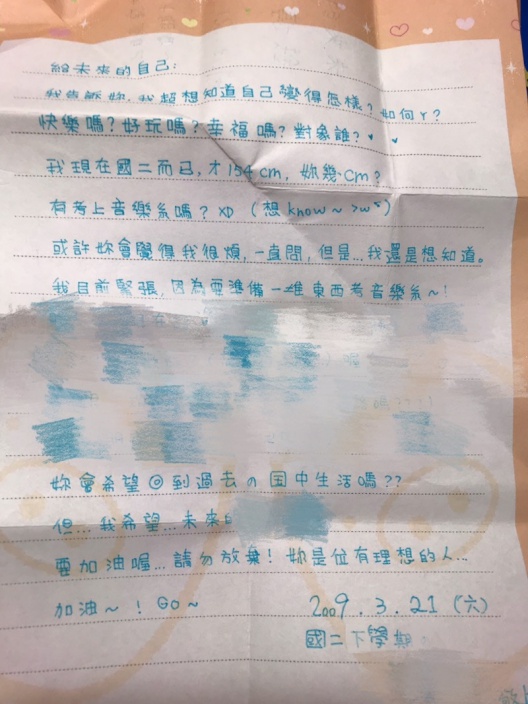 給未來的自己:
我告訴妳,我超想知道自己變得怎樣?如何Y?
快樂嗎?好玩嗎?幸福嗎?對象誰?
我現在國二而已,才154cm,妳幾cm?
有考上音樂系嗎? XD (想know~ >w<)
或許妳會覺得我很煩,一直問,但是...我還是想知道。
我目前緊張,因為要準備一堆東西考音樂系~!
妳會希望回到過去の国中生活嗎??
但...我希望...未來的
要加油喔...請勿放棄!妳是位有理想的人...
加油~!GO~
2009.3.21(六)
國二下學期